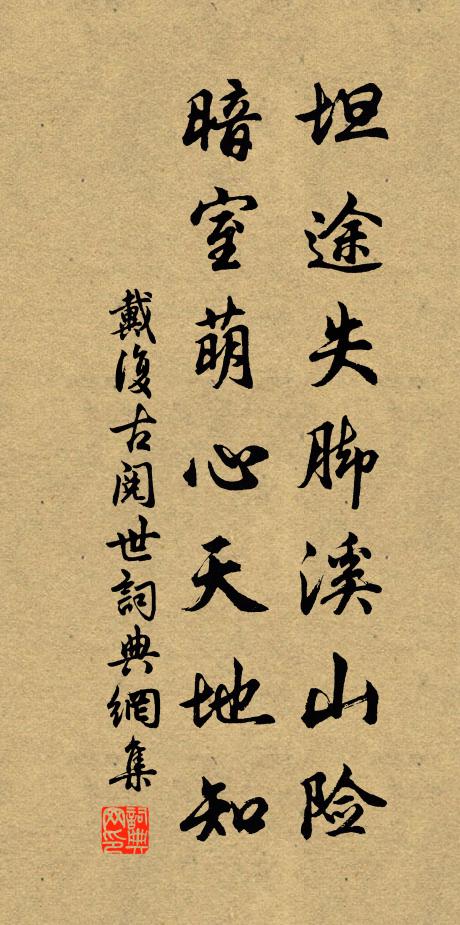 坦途失脚溪山险
暗室萌心天地知
戴復古阅世詞典網集
詞典
网印